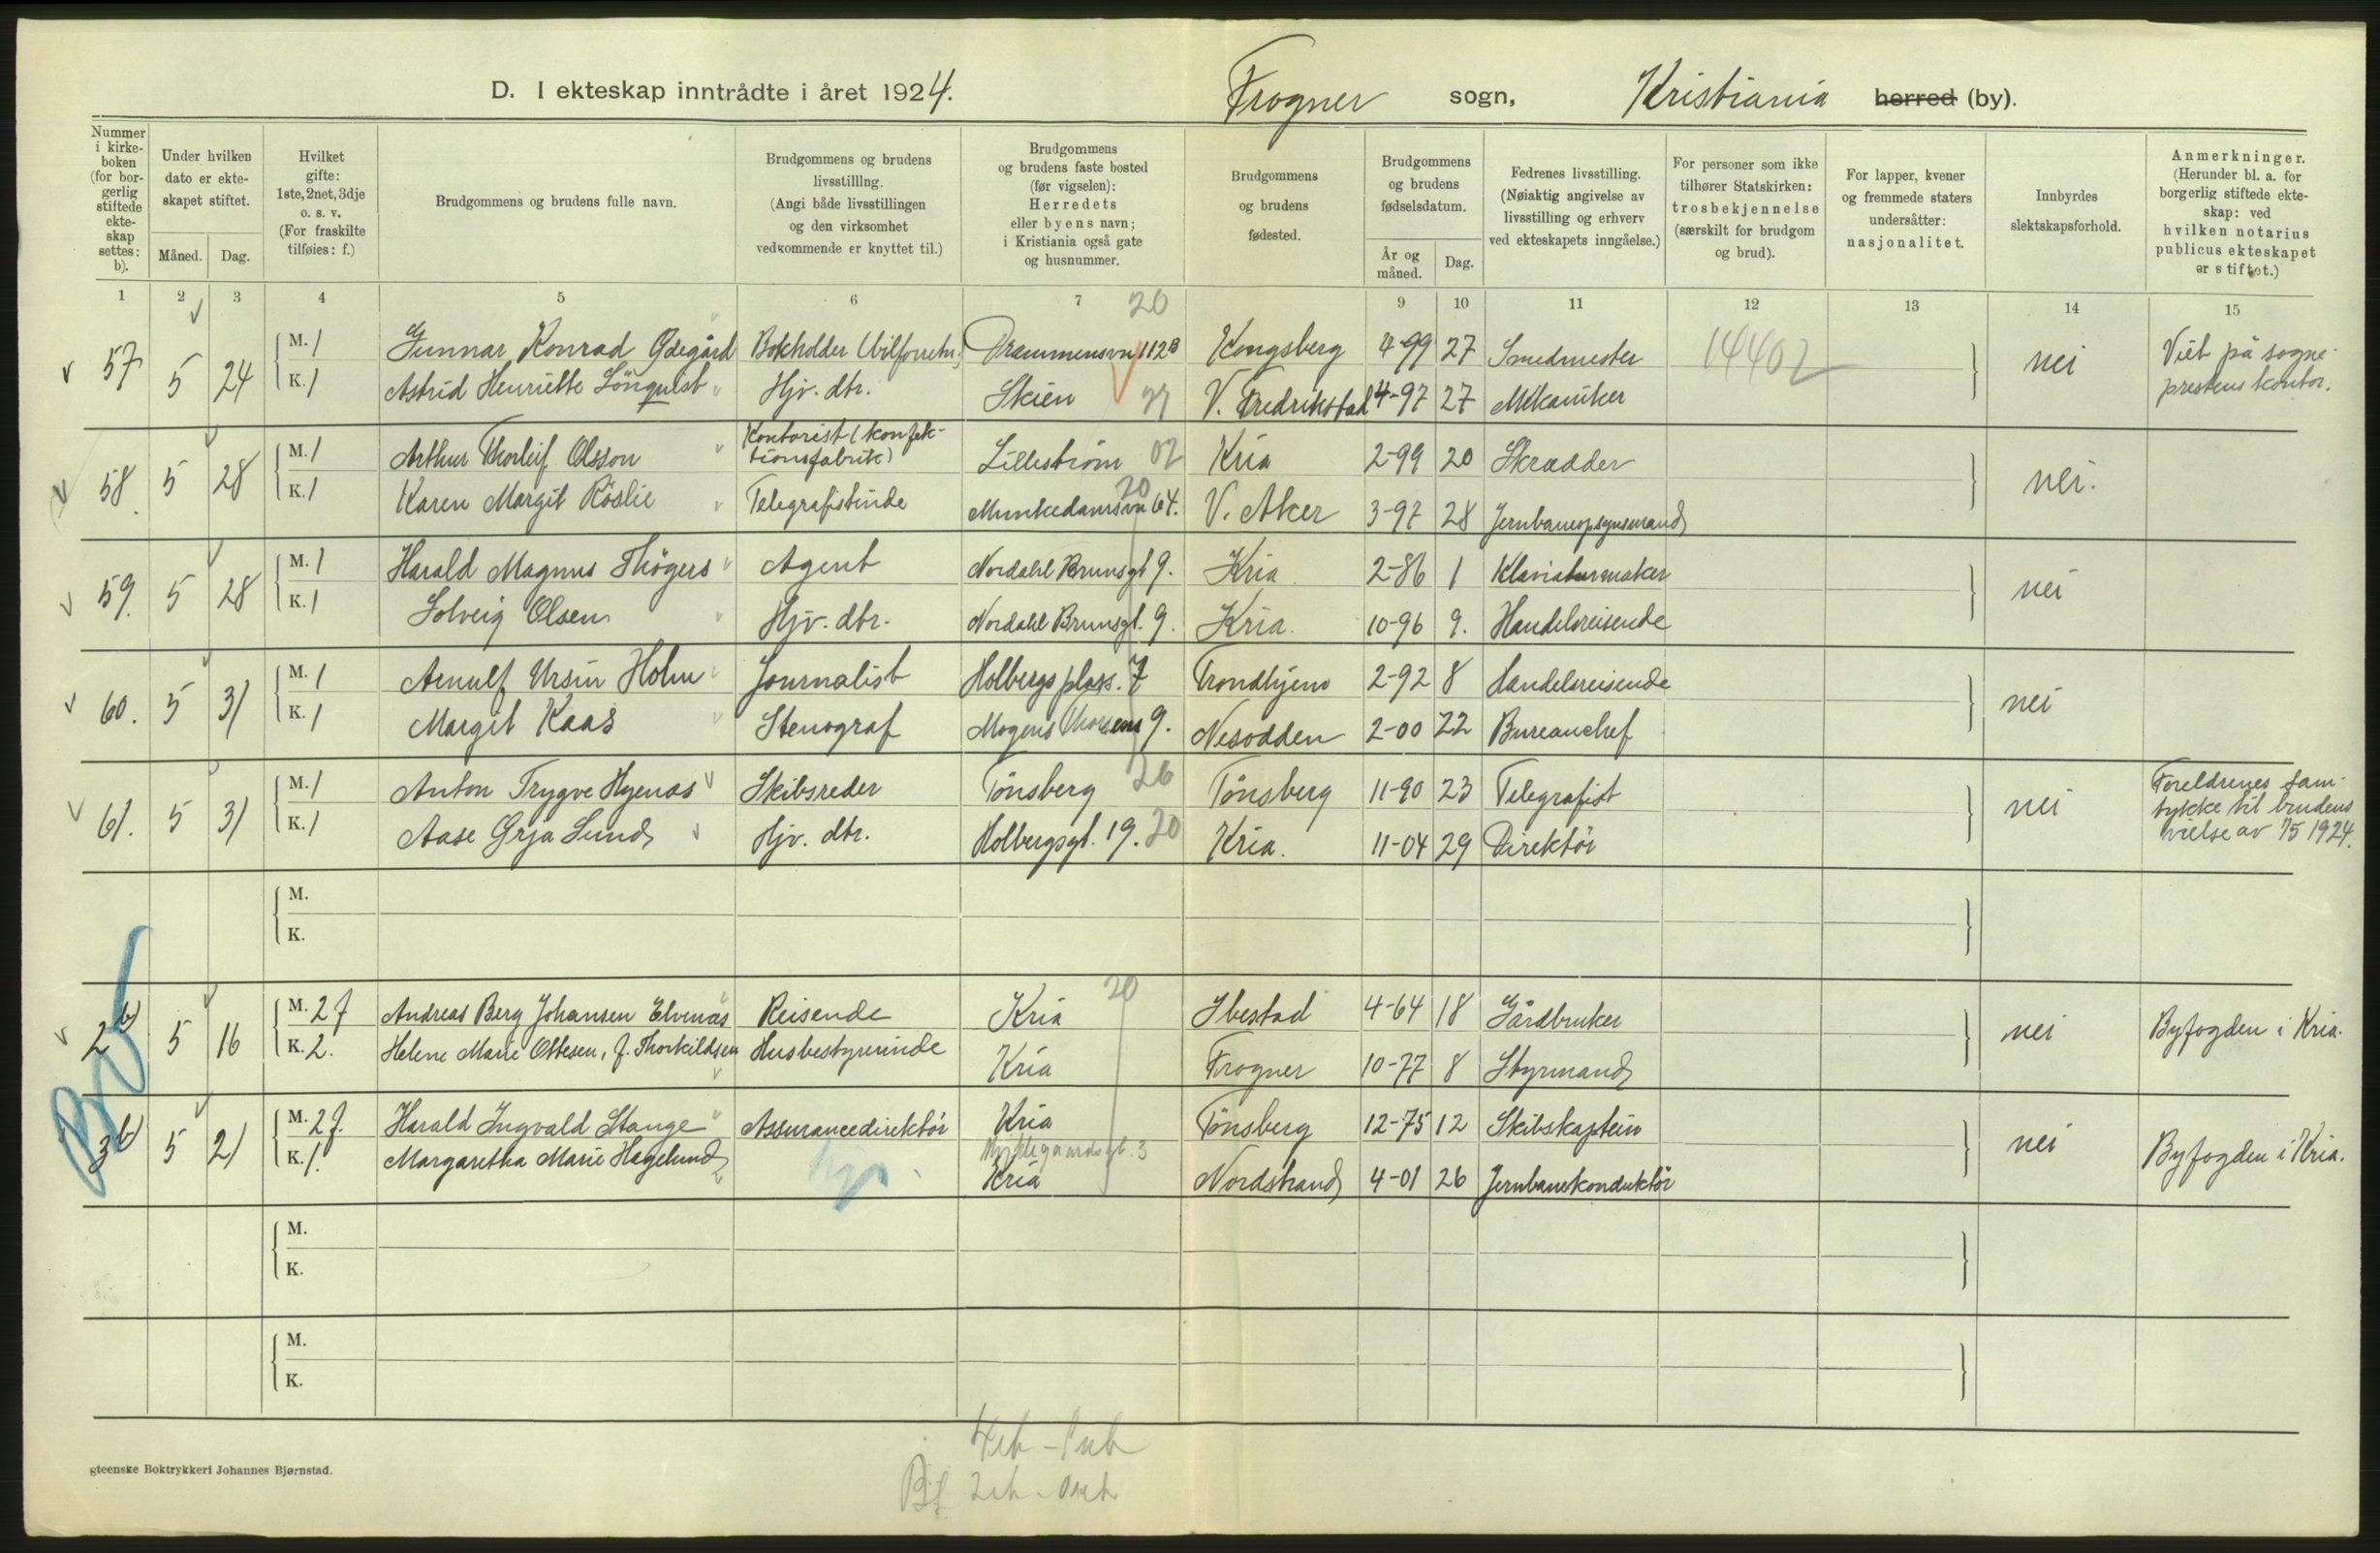 D. I ekteskap inntrådte i året 1924.
Frogner sogn, Kristiania herred (by).
Nummer i kirke- boken (for bor- gerlig stiftede ekte- skap settes: b).
Under hvilken dato er ekte- skapet stiftet.
Måned. Dag.
Hvilket gifte: 1ste, 2net, 3dje o. s. v. (For fraskilte tilføies: f.)
Brudgommens og brudens fulle navn.
Brudgommens og brudens livsstilllng. (Angi både livsstillingen og den virksomhet vedkommende er knyttet til.)
Brudgommens og brudens faste bosted (før vigselen): Herredets eller byens navn; i Kristiania også gate og husnummer.
Brudgommens og brudens fødested.
Brudgommens og brudens fødselsdatum.
År og måned. Dag.
Fedrenes livsstilling. (Nøiaktig angivelse av livsstilling og erhverv ved ekteskapets inngåelse.)
For personer som ikke tilhører Statskirken: trosbekjennelse (særskilt for brudgom og brud).
For lapper, kvener og fremmede staters undersåtter: nasjonalitet.
Innbyrdes slektskapsforhold.
Anmerkninger. (Herunder bl. a. for borgerlig stiftede ekte- skap: ved hvilken notarius publicus ekteskapet er stiftet.)
1 2 3 4 5 6 7 9 10 11 12 13 14 15
20
57 5 24 M. 1 Gunnar Konrad Ødegård Bokholder (bilforretn.) Drammensvn 112B Kongsberg 4-99 27 Smedmester 14402 nei Viet på sogne- prestens kontor.
K. 1 Astrid Henriette Lönquist Hjv. dtr. Skien V. Fredrikstad 4-97 27 Mekaniker
58 5 28 M. 1 Arthur Thorleif Olsson Kontorist (konfek- tionsfabrik) Lilleström 02 Kria 2-99 20 Skrædder nei.
K. 1 Karen Margit Röslie Telegrafistinde Munkedamsvn 64. 20 V. Aker 3-97 28 Jernbaneopsynsmand
59. 5 28 M. 1 Harald Magnus Thögers Agent Nordahl Brunsgt 9. Kria 2-86 1 Klaviaturmaker nei
K. 1 Solveig Olsen Hjv. dtr. Nordahl Brunsgt. 9. Kria. 10-96 9. Handelsreisende
60. 5 31 M. 1 Arnulf Ursin Holm Journalist Holbergs plass. 7 Trondhjem 2-92 8 Handelsreisende nei
K. 1 Margit Kaas Stenograf Mogens Thorsens 9. Nesodden 2-00 22 Bureauchef
61. 5 31 M. 1 Anton Trygve Hyenæs Skibsreder Tönsberg 26 Tönsberg 11-90 23 Telegrafist nei Foreldrenes sam- tykke til brudens vielse av 7/5 1924.
K. 1 Aase Grja Lund Hjv. dtr. Holbergsgt. 19. 20 Kria. 11-04 29 Direktör
M.
K.
2 b) 5 16 M. 2 f Andreas Berg Johansen Elvenæs Reisende Kria 20 Ibestad 4-64 18 Gårdbruker nei Byfogden i Kria.
K. 2. Helene Marie Ottesen, f. Thorkildsen Husbestyrerinde Kria Frogner 10-77 8 Styrmand
3 b) 5 21 M. 2 f. Harald Ingvald Stange Assurancedirektör Kria Tönsberg 12-75 12 Skibskaptein nei Byfogden i Kria.
K. 1. Margaretha Marie Hagelund Kria Nordstrand 4-01 26 Jernbanekonduktör
M.
K.
M.
K.
gteenske Boktrykkeri Johannes Bjørnstad.